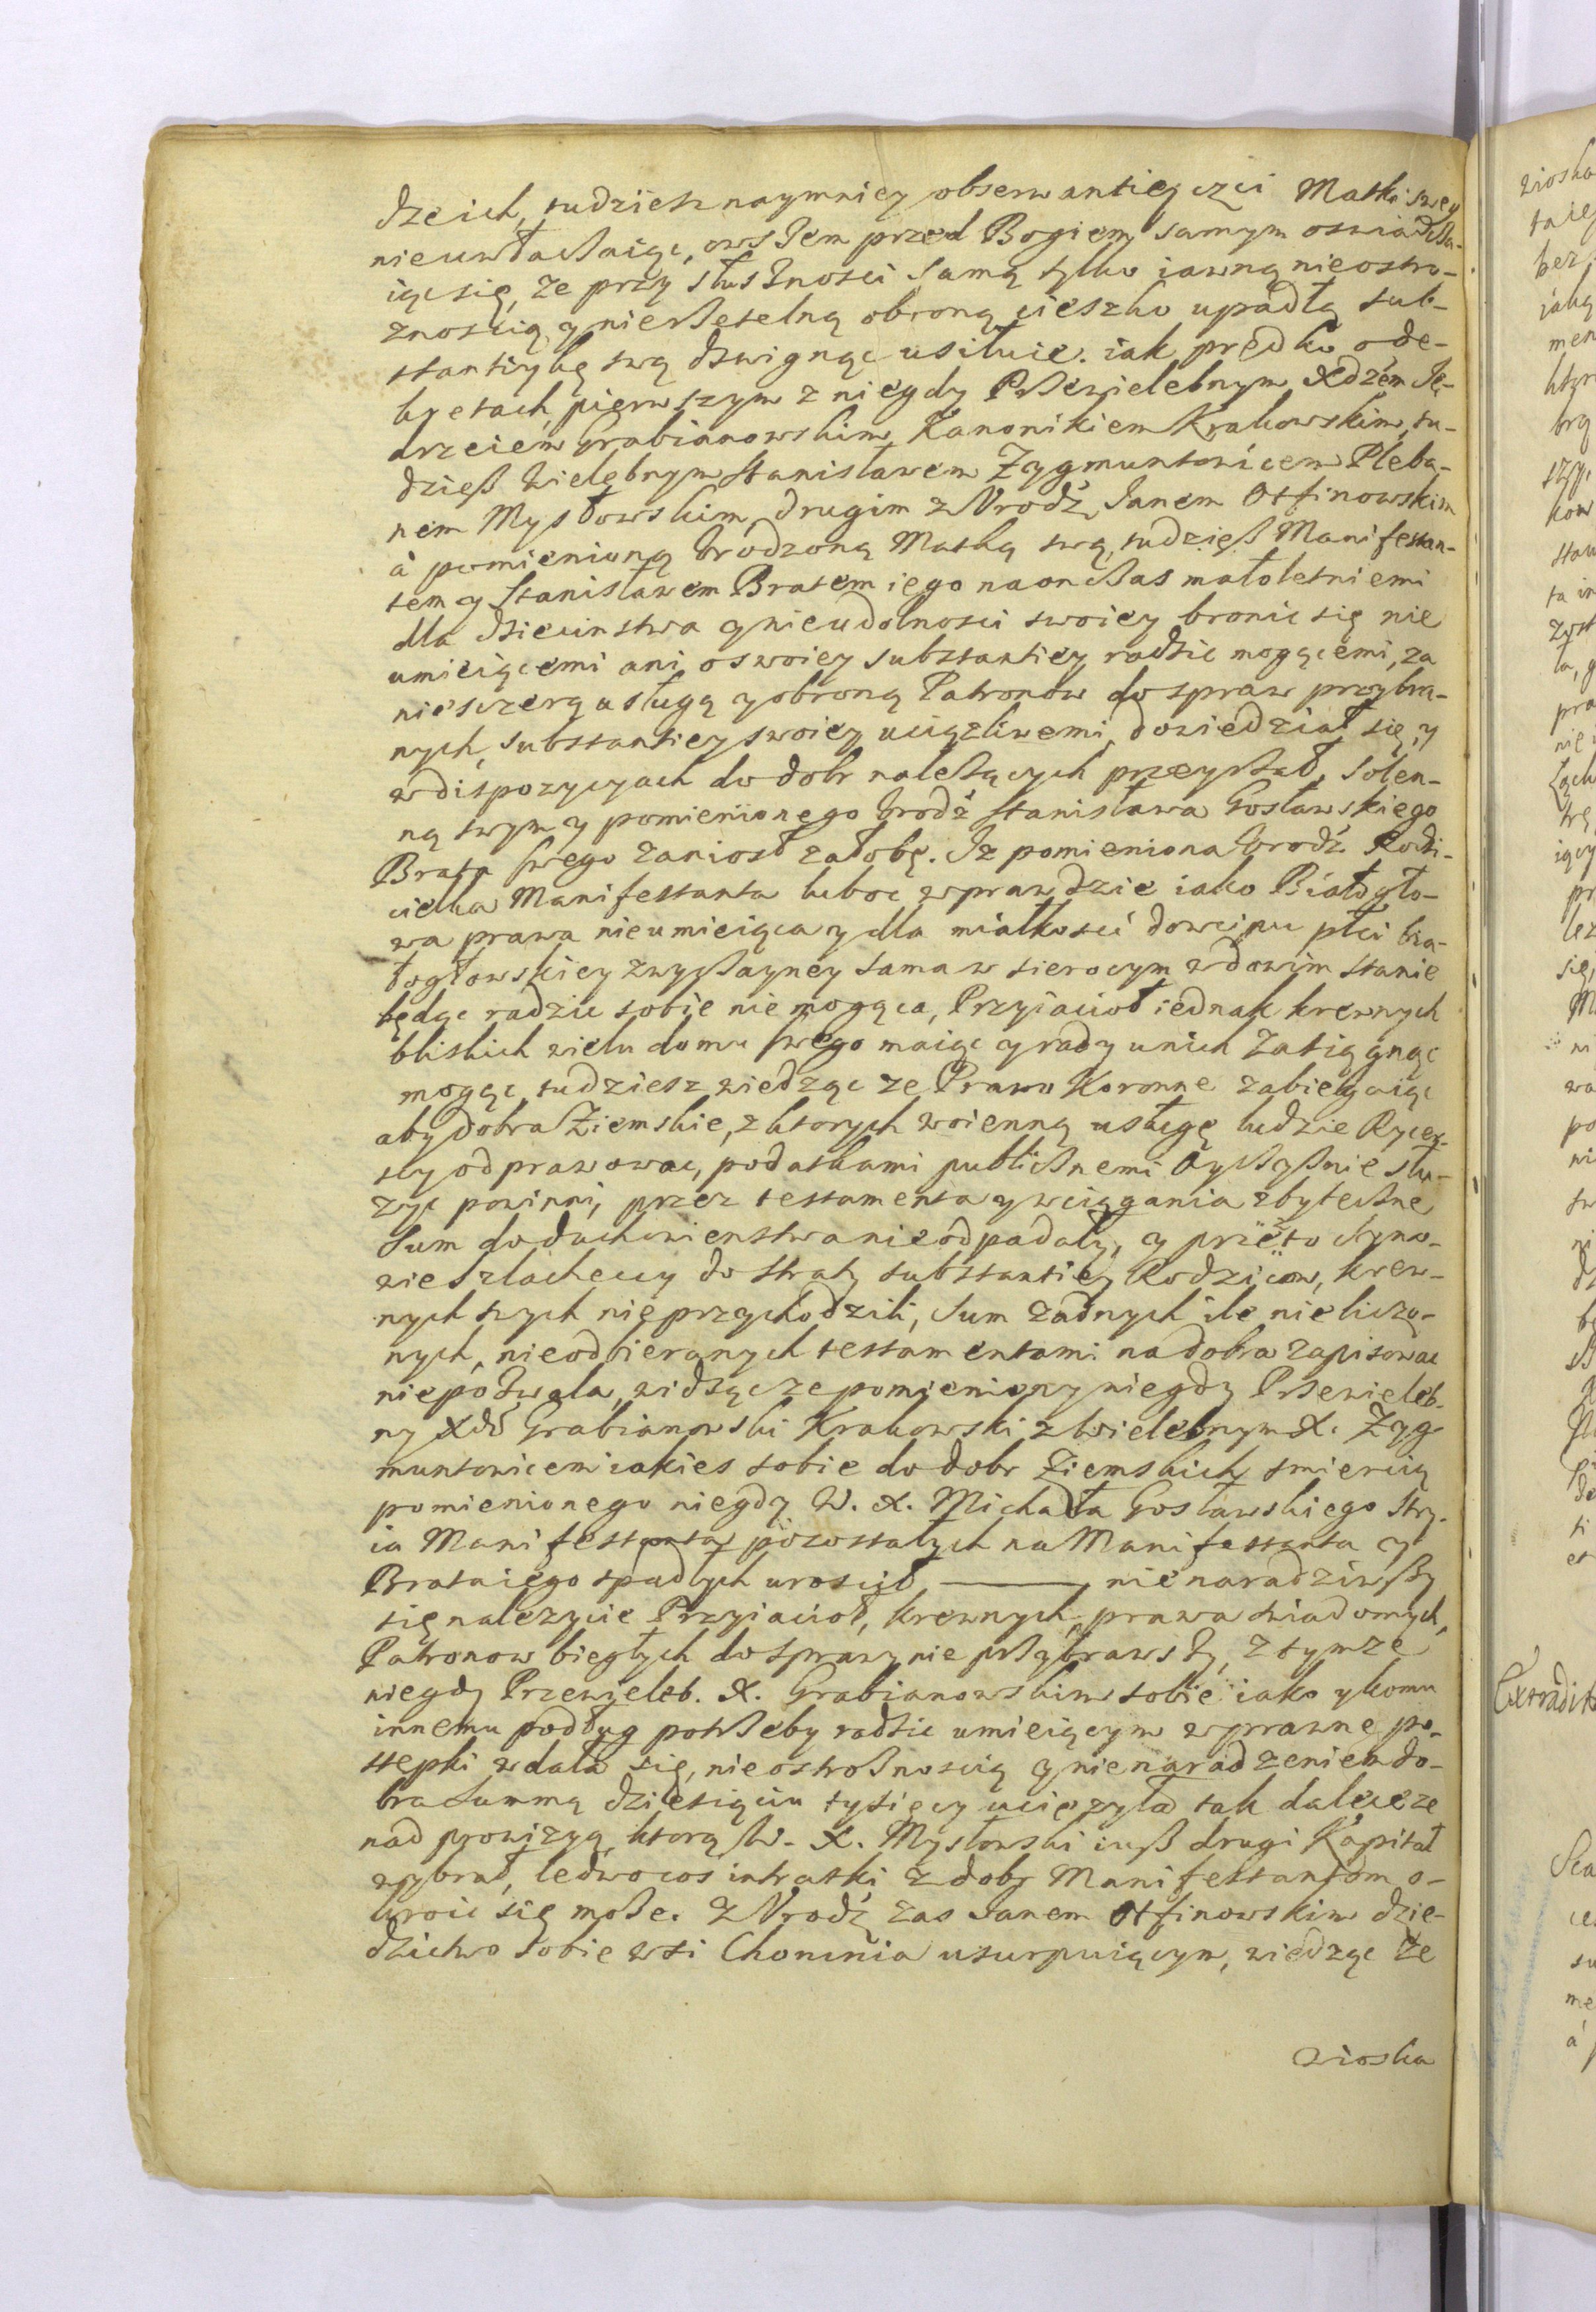 dzeich, tudziesz naymniey obserwantiey czci Matki swey
nieuwłaczaiąc, owszem przed Bogiem samym oswiadcza-
iąc się, że przy słuszności samą tylko iawną nieostro-
znoscią y nierzetelną obroną cieszko upadłą sub-
stantiykę swą dzwignąc usiłuie. iak prędko o de-
kretach pierwszym z niegdy Przewielebnym Xdzem Ję-
drzeiem Grabianowskim Kanonikiem Krakowskim, tu-
dziesz Wielebnym Stanisławem Zygmuntowicem Pleba-
nem Mysłowskim, drugim z Urodz. Janem Otfinowskim
à pomienioną Urodzoną Matką swą, tudziesz Manifestan-
tem y Stanisławem Bratem iego na on czas małoletniemi
dla dziecinstwa y nieudolnosci swoiey bronic się nie
umieiącemi ani o swoiey substantiey radzic mogącemi, za
nieszczerą usługą y obroną Patronow do spraw przybra-
nych, substantiey swoiey uciązliwemi, dowiedział się, y
w dispozycyach do dobr należących przeyrzał, solen-
ną swym y pomienionego Urodz. Stanisława Gosławskiego
Brata swego zaniosł załobę. Iz pomieniona Urodz. Rodzi-
cielka Manifestanta luboc wprawdzie iako Białogło-
wa prawa nieumieiąca y dla miałkosci dowcipu płci bia-
łogłowskiey zwyczayney sama w sierocym wdowim stanie
będąc radzic sobie nie mogąca, Przyiacioł iednak krewnych
bliskich wielu domu swego maiąc y rady u nich zasięgnąc
mogąc, tudziesz wiedząc ze Prawo Koronne zabiegaiąc
aby dobra Ziemskie, z ktorych woienną usługę ludzie Rycer-
scy odprawowac, podatkami publicznemi Oyczyznie słu-
zyc powinni, przez testamenta y wciągania zbyteczne
Sum do duchowienstwa nie odpadały, y przeto Syno-
wie szlacheccy do straty substantiey Rodzicow, krew-
nych swych nie przychodzili, Sum zadnych ile nieliczo-
nych, nieodbieranych testamentami na dobra zapisowac
niepozwala, widząc ze pomieniony niegdy Przewieleb-
ny Xdz Grabianowski Krakowski z Wielebnym X. Zyg-
muntowicem iakies sobie do dobr Ziemskich smiercią
pomienionego niegdy W. X. Michała Gosławskiego Stry-
ia Manifestanta pozostałych na Manifestanta y
Brata iego spadłych uroscił, ——— nie naradziwszy
się nalezycie Przyiacioł, krewnych, prawa swiadomych,
Patronow biegłych do sprawy nie przybrawszy, z tymze
niegdy Przewieleb. X. Grabianowskim sobie iako y komu
innemu podług potrzeby radzic umieiącym w prawne po-
stepki wdała się, nieostroznoscią y nienaradzeniem do-
bra Summą dziesięciu tysięcy uciązyła tak dalece ze
nad prowizyą, ktorą W. X. Mysłowski iusz drugi Kapitał
wybrał, ledwo cos intratki z dobr Manifestantom o-
kroic się może. Z Urodz. zas Janem Otfinowskim dzie-
dzictwo sobie wsi Choninia usurpuiącym, wiedząc że
wioska